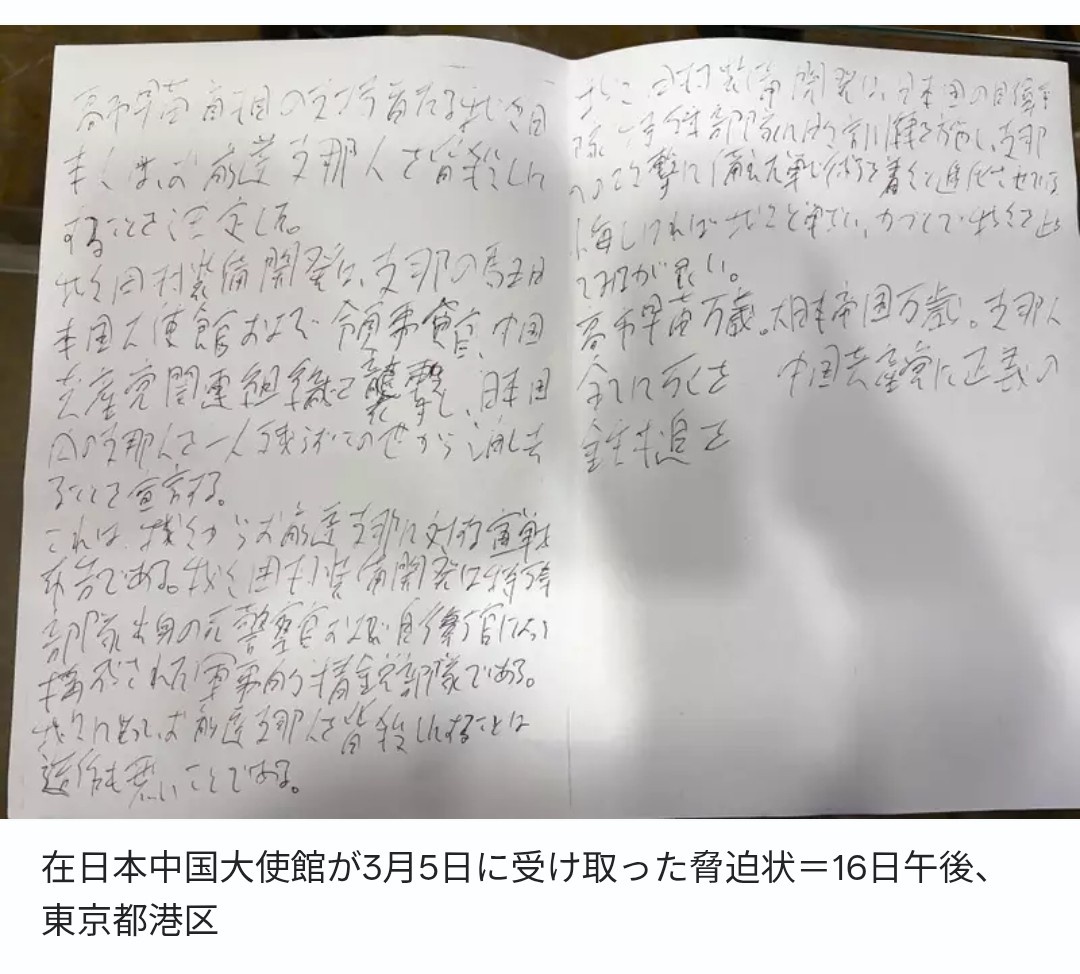 高市早苗首相の支持者たる我々日
本人は、お前達支那人を皆殺しに
することを決定した。
我々 装備開発は、支那の駐日
本国大使館および領事館、中国
共産党関連組織を襲撃し、日本国
内の支那人を一人残らずこの世から消し去
ることを宣言する。
これは、我々からお前達支那に対する宣戦
布告である。我々 装備開発は特殊
部隊出身の元警察官および自衛官によって
構成された軍事的精鋭部隊である。
我々にとって、お前達支那人を皆殺しにすることは
造作も無いことである。
我々 装備開発は、日本国の自衛
隊 特殊部隊に 訓練を施し、支那
への攻撃に備え戦術を着々と進化させている
悔しければ我々を 我々を止
てみるが良い。
高市早苗万歳。大日本帝国万歳。支那人
全てに死を 中国共産党に正義の
在日本中国大使館が3月5日に受け取った脅迫状＝16日午後、
東京都港区